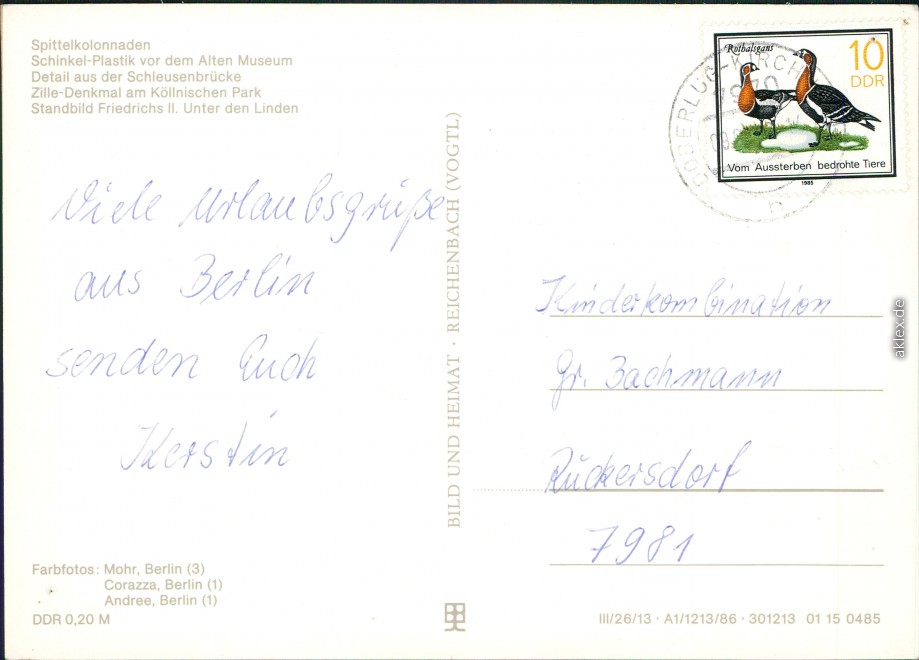 Spittelkolonnaden
Schinkel-Plastik vor dem Alten Museum
Detail aus der Schleusenbrücke
Zille-Denkmal am Köllnischen Park
Standbild Friedrichs II. Unter den Linden
Viele Urlaubsgrüße
aus Berlin
senden Euch
Kerstin
Farbfotos: Mohr, Berlin (3)
Corazza, Berlin (1)
Andree, Berlin (1)
DDR 0,20 M
BILD UND HEIMAT · REICHENBACH (VOGTL)
Rothalsgans
10
DDR
Vom Aussterben bedrohte Tiere
1985
DOBERLUG-KIRCHH
7970
Kinderkombination
Gr. Bachmann
Rückersdorf
7981
III/26/13 · A1/1213/86 · 301213 01 15 0485
aklex.de